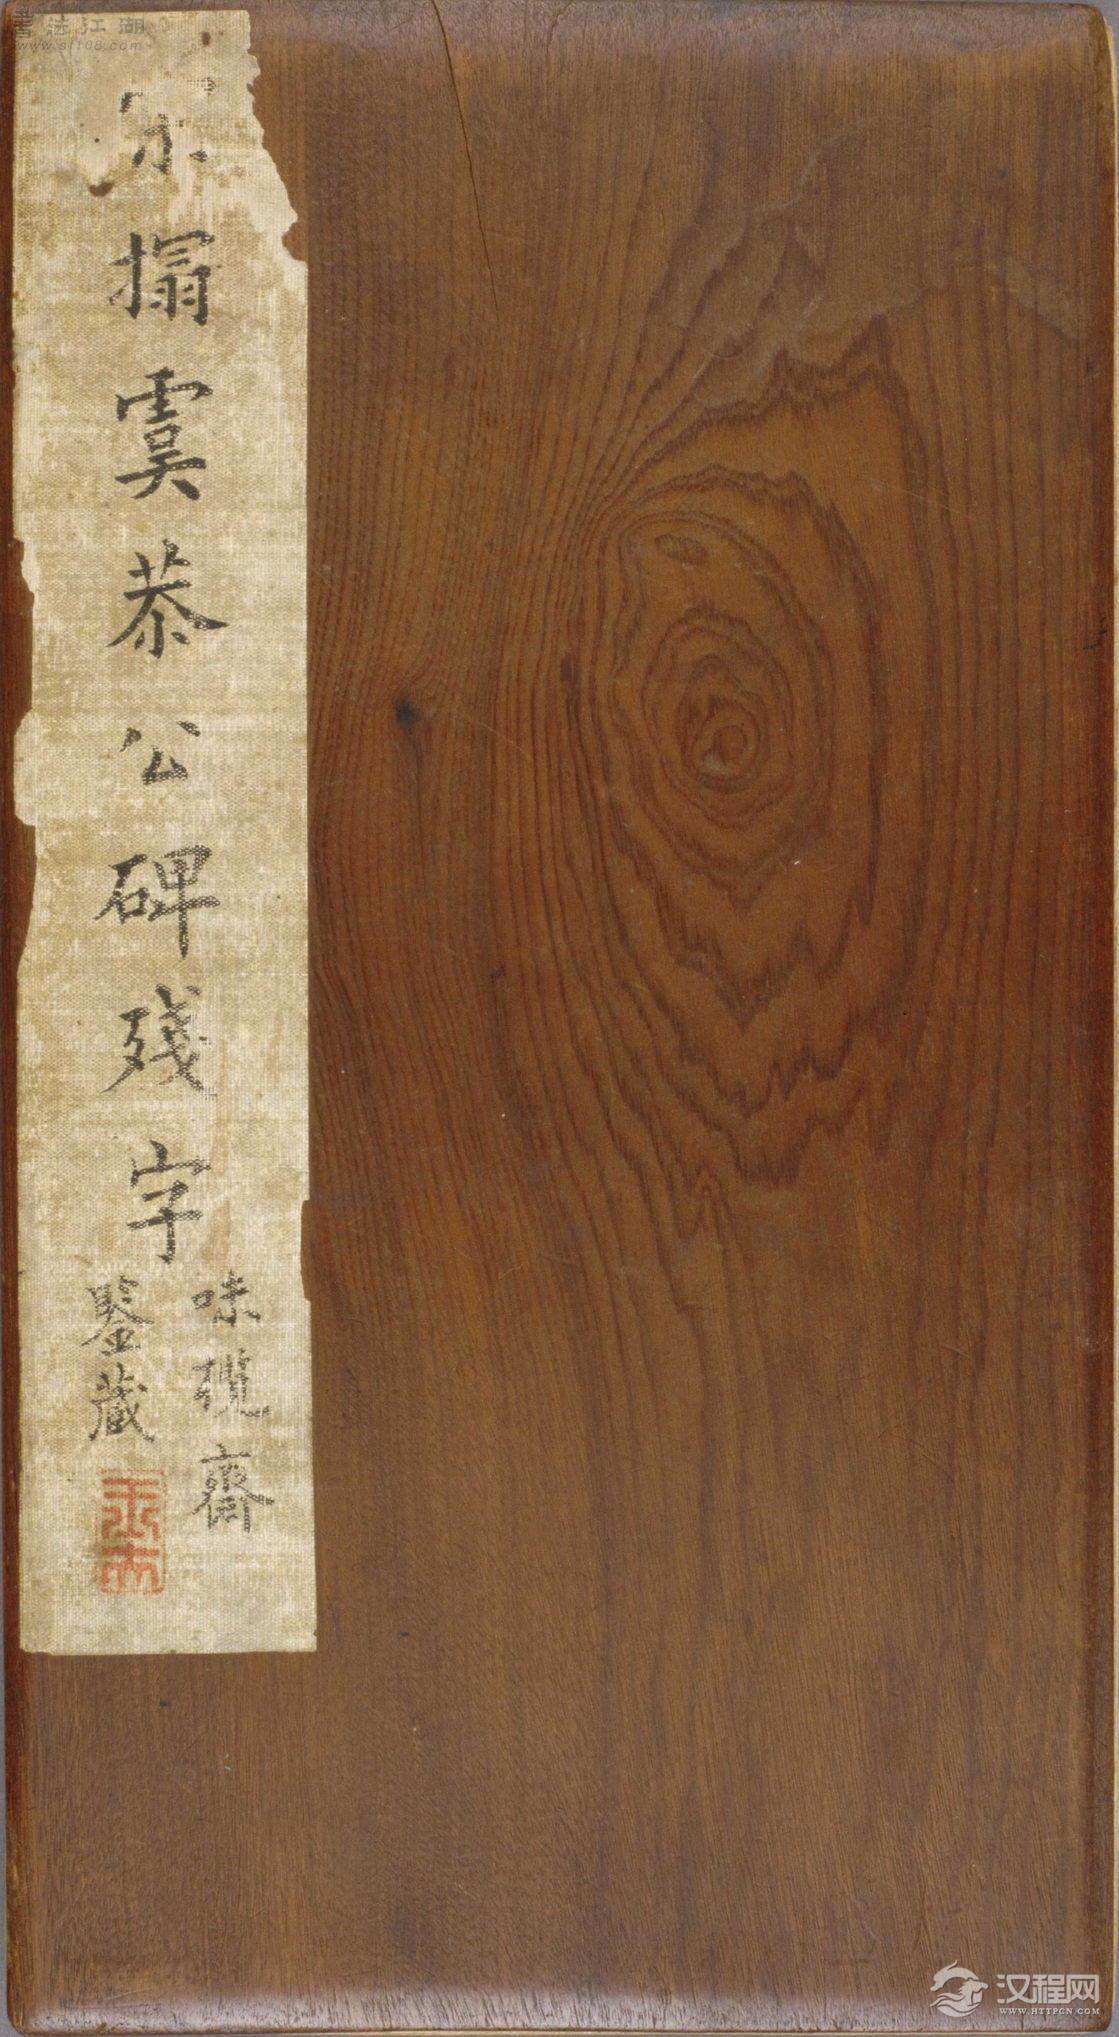 書法江湖
www.sf108.com
宋搨虞恭公碑殘字
味欖齋
鋻藏
汉程网
WWW.HTTPCN.COM